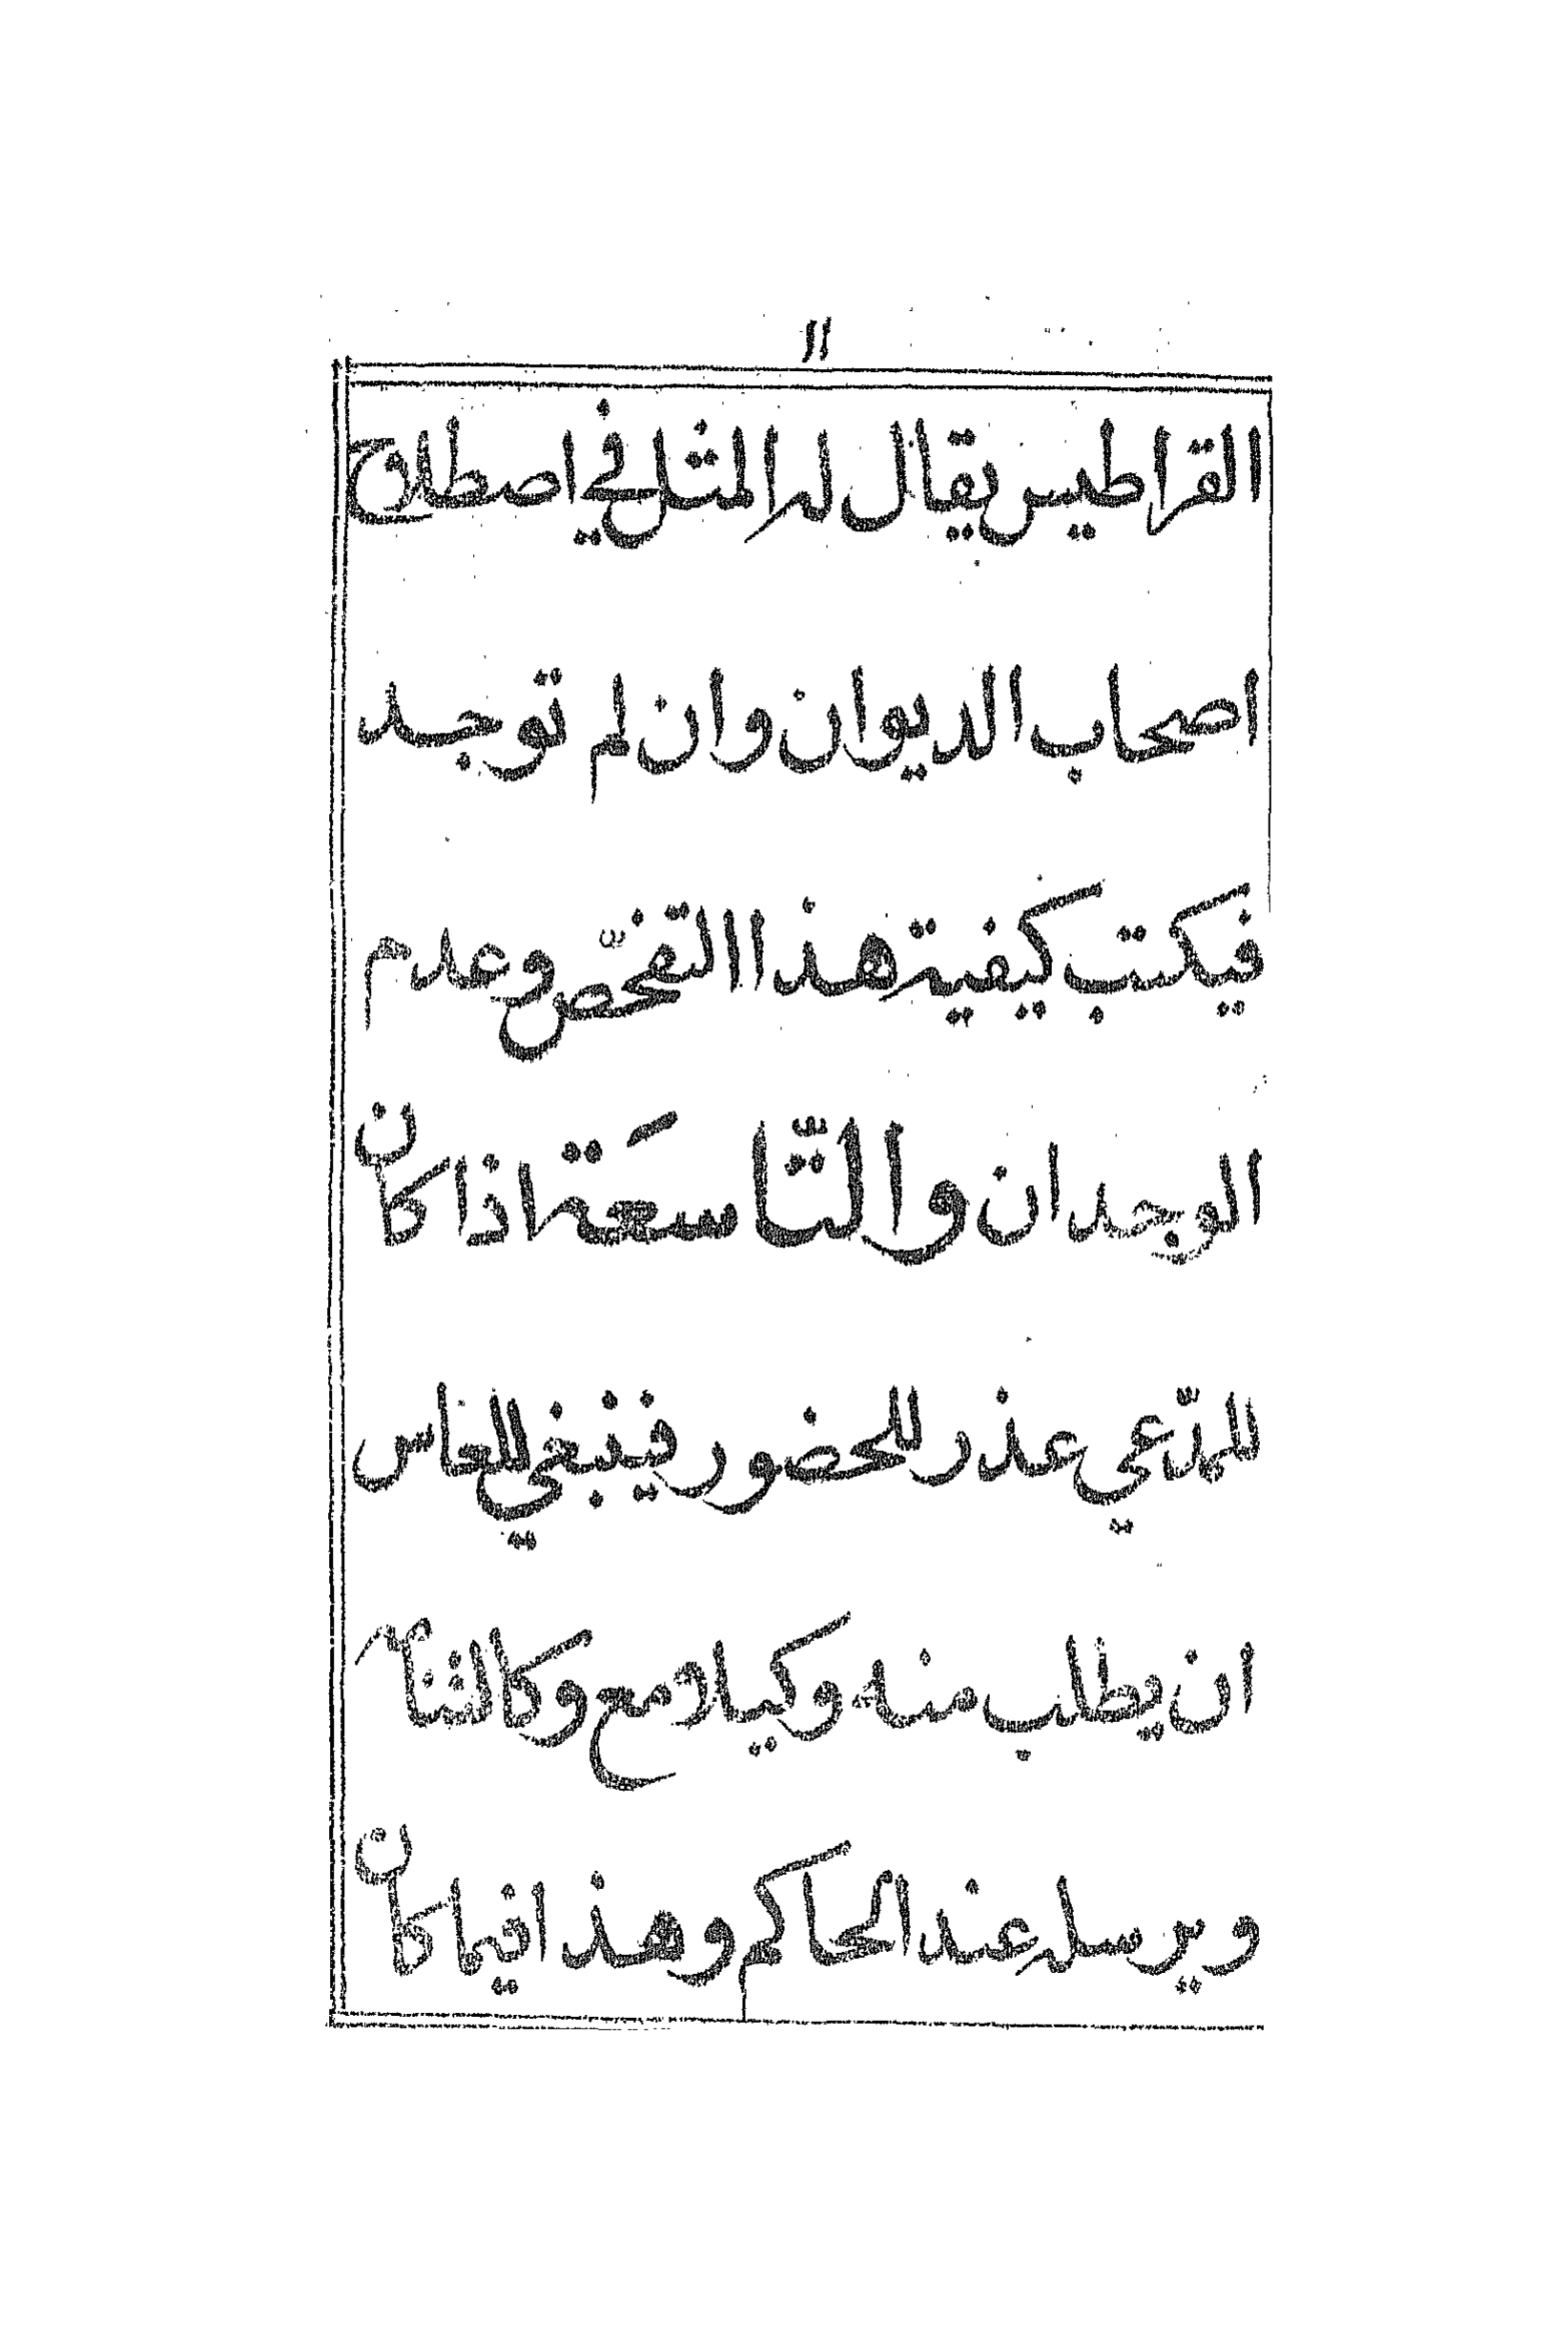 ١١
القراطيس يقال له المثل في اصطلاح
اصحاب الديوان وان لم توجد
فيكتب كيفية هذا االتفحّص وعدم
الوجدان والتّاسعَة اذا كان
للمدّعي عذر للحضور فينبغي للعاس
ان يطلب منه وكيلا مع وكالتنامه
ويرسله عند الحاكم وهذا فيما كان